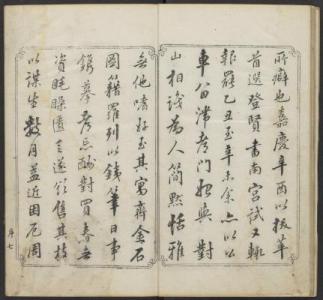 所癖也嘉慶辛酉以拔萃
首選登賢書南宮試又輒
報罷乙丑至辛未余亦以公
車留滯都門與對
山相識為人簡默恬雅
無他嗜好至其寓齋金石
圖籍羅列以鐵筆日事
鐫摹忘酬對買春無
資遂欲售其技
以謀生數月盖近困厄周
序 七